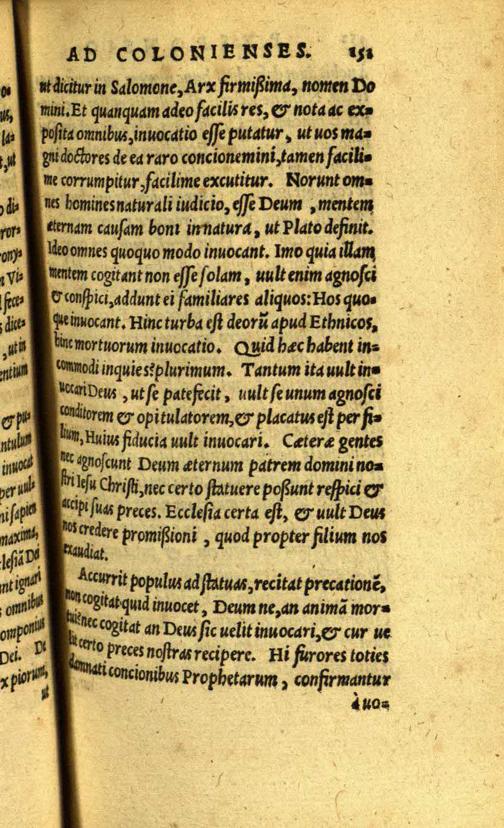 AD COLONIENSES. 152
ut dicitur in Salomone, Arx firmißima, nomen Do
mini. Et quanquam adeo facilis res, & nota ac ex=
posita omnibus, inuocatio esse putatur, ut uos ma=
gni doctores de ea raro concionemini, tamen facili=
me corrumpitur, facilime excutitur. Norunt om=
nes homines naturali iudicio, esse Deum, mentem
æternam causam boni in natura, ut Plato definit.
Ideo omnes quoquo modo inuocant. Imo quia illam
mentem cogitant non esse solam, uult enim agnosci
& conspici, addunt ei familiares aliquos: Hos quo=
que inuocant. Hinc turba est deorũ apud Ethnicos,
hinc mortuorum inuocatio. Quid hæc habent in=
commodi inquies? plurimum. Tantum ita uult in=
uocari Deus, ut se patefecit, uult se unum agnosci
conditorem & opitulatorem, & placatus est per fi=
lium, Huius fiducia uult inuocari. Cæteræ gentes
nec agnoscunt Deum æternum patrem domini no=
stri Iesu Christi, nec certo statuere possunt respici &
accipi suas preces. Ecclesia certa est, & uult Deus
nos credere promißioni, quod propter filium nos
exaudiat.
Accurrit populus ad statuas, recitat precationẽ,
non cogitat quid inuocet, Deum ne, an animã mor=
tui: nec cogitat an Deus sic uelit inuocari, & cur ue
lit certo preces nostras recipere. Hi furores toties
damnati concionibus Prophetarum, confirmantur
à uo=